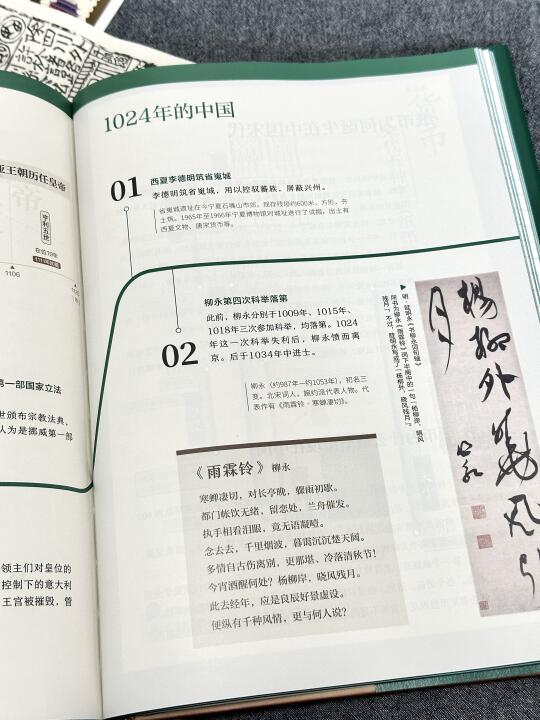 亚王朝历任皇帝
亨利五世
在位19年
1106
第一部国家立法
世颁布宗教法典，
认为是挪威第一部
领主们对皇位的
控制下的意大利
王宫被摧毁，管
1024年的中国
01
西夏李德明筑省嵬城
李德明筑省嵬城，用以控驭蕃族，屏蔽兴州。
省嵬城遗址在今宁夏石嘴山市郊。现存残垣约600米，方形，夯
土筑。1965年至1966年宁夏博物馆对城址进行了试掘，出土有
西夏文物、唐宋货币等。
02
柳永第四次科举落第
此前，柳永分别于1009年、1015年、
1018年三次参加科举，均落第。1024
年这一次科举失利后，柳永愤而离
京。后于1034年中进士。
柳永（约987年—约1053年），初名三
变。北宋词人。婉约派代表人物。代
表作有《雨霖铃·寒蝉凄切》。
《雨霖铃》柳永
寒蝉凄切，对长亭晚，骤雨初歇。
都门帐饮无绪，留恋处，兰舟催发。
执手相看泪眼，竟无语凝噎。
念去去，千里烟波，暮霭沉沉楚天阔。
多情自古伤离别，更那堪、冷落清秋节！
今宵酒醒何处？杨柳岸，晓风残月。
此去经年，应是良辰好景虚设。
便纵有千种风情，更与何人说？
杨柳外
晓风
月